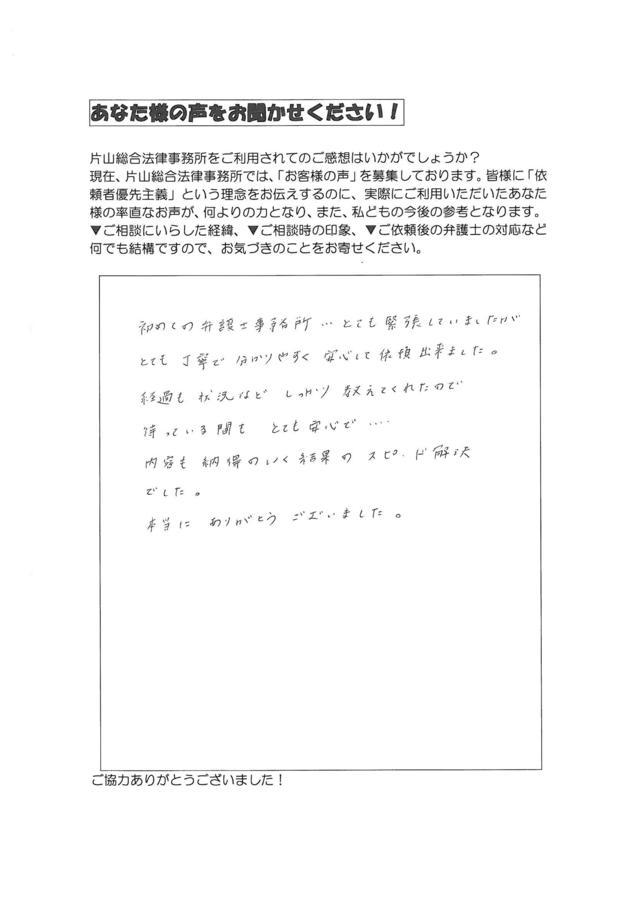 あなた様の声をお聞かせください！
片山総合法律事務所をご利用されてのご感想はいかがでしょうか？
現在、片山総合法律事務所では、「お客様の声」を募集しております。皆様に「依
頼者優先主義」という理念をお伝えするのに、実際にご利用いただいたあなた
様の率直なお声が、何よりの力となり、また、私どもの今後の参考となります。
▼ご相談にいらした経緯、▼ご相談時の印象、▼ご依頼後の弁護士の対応など
何でも結構ですので、お気づきのことをお寄せください。
初めての弁護士事務所…とても緊張していましたが
とても丁寧で分かりやすく安心して依頼出来ました。
経過も状況など しっかり教えてくれたので
待っている間も とても安心で‥‥
内容も納得のいく結果のスピード解決
でした。
本当に ありがとう ございました。
ご協力ありがとうございました！